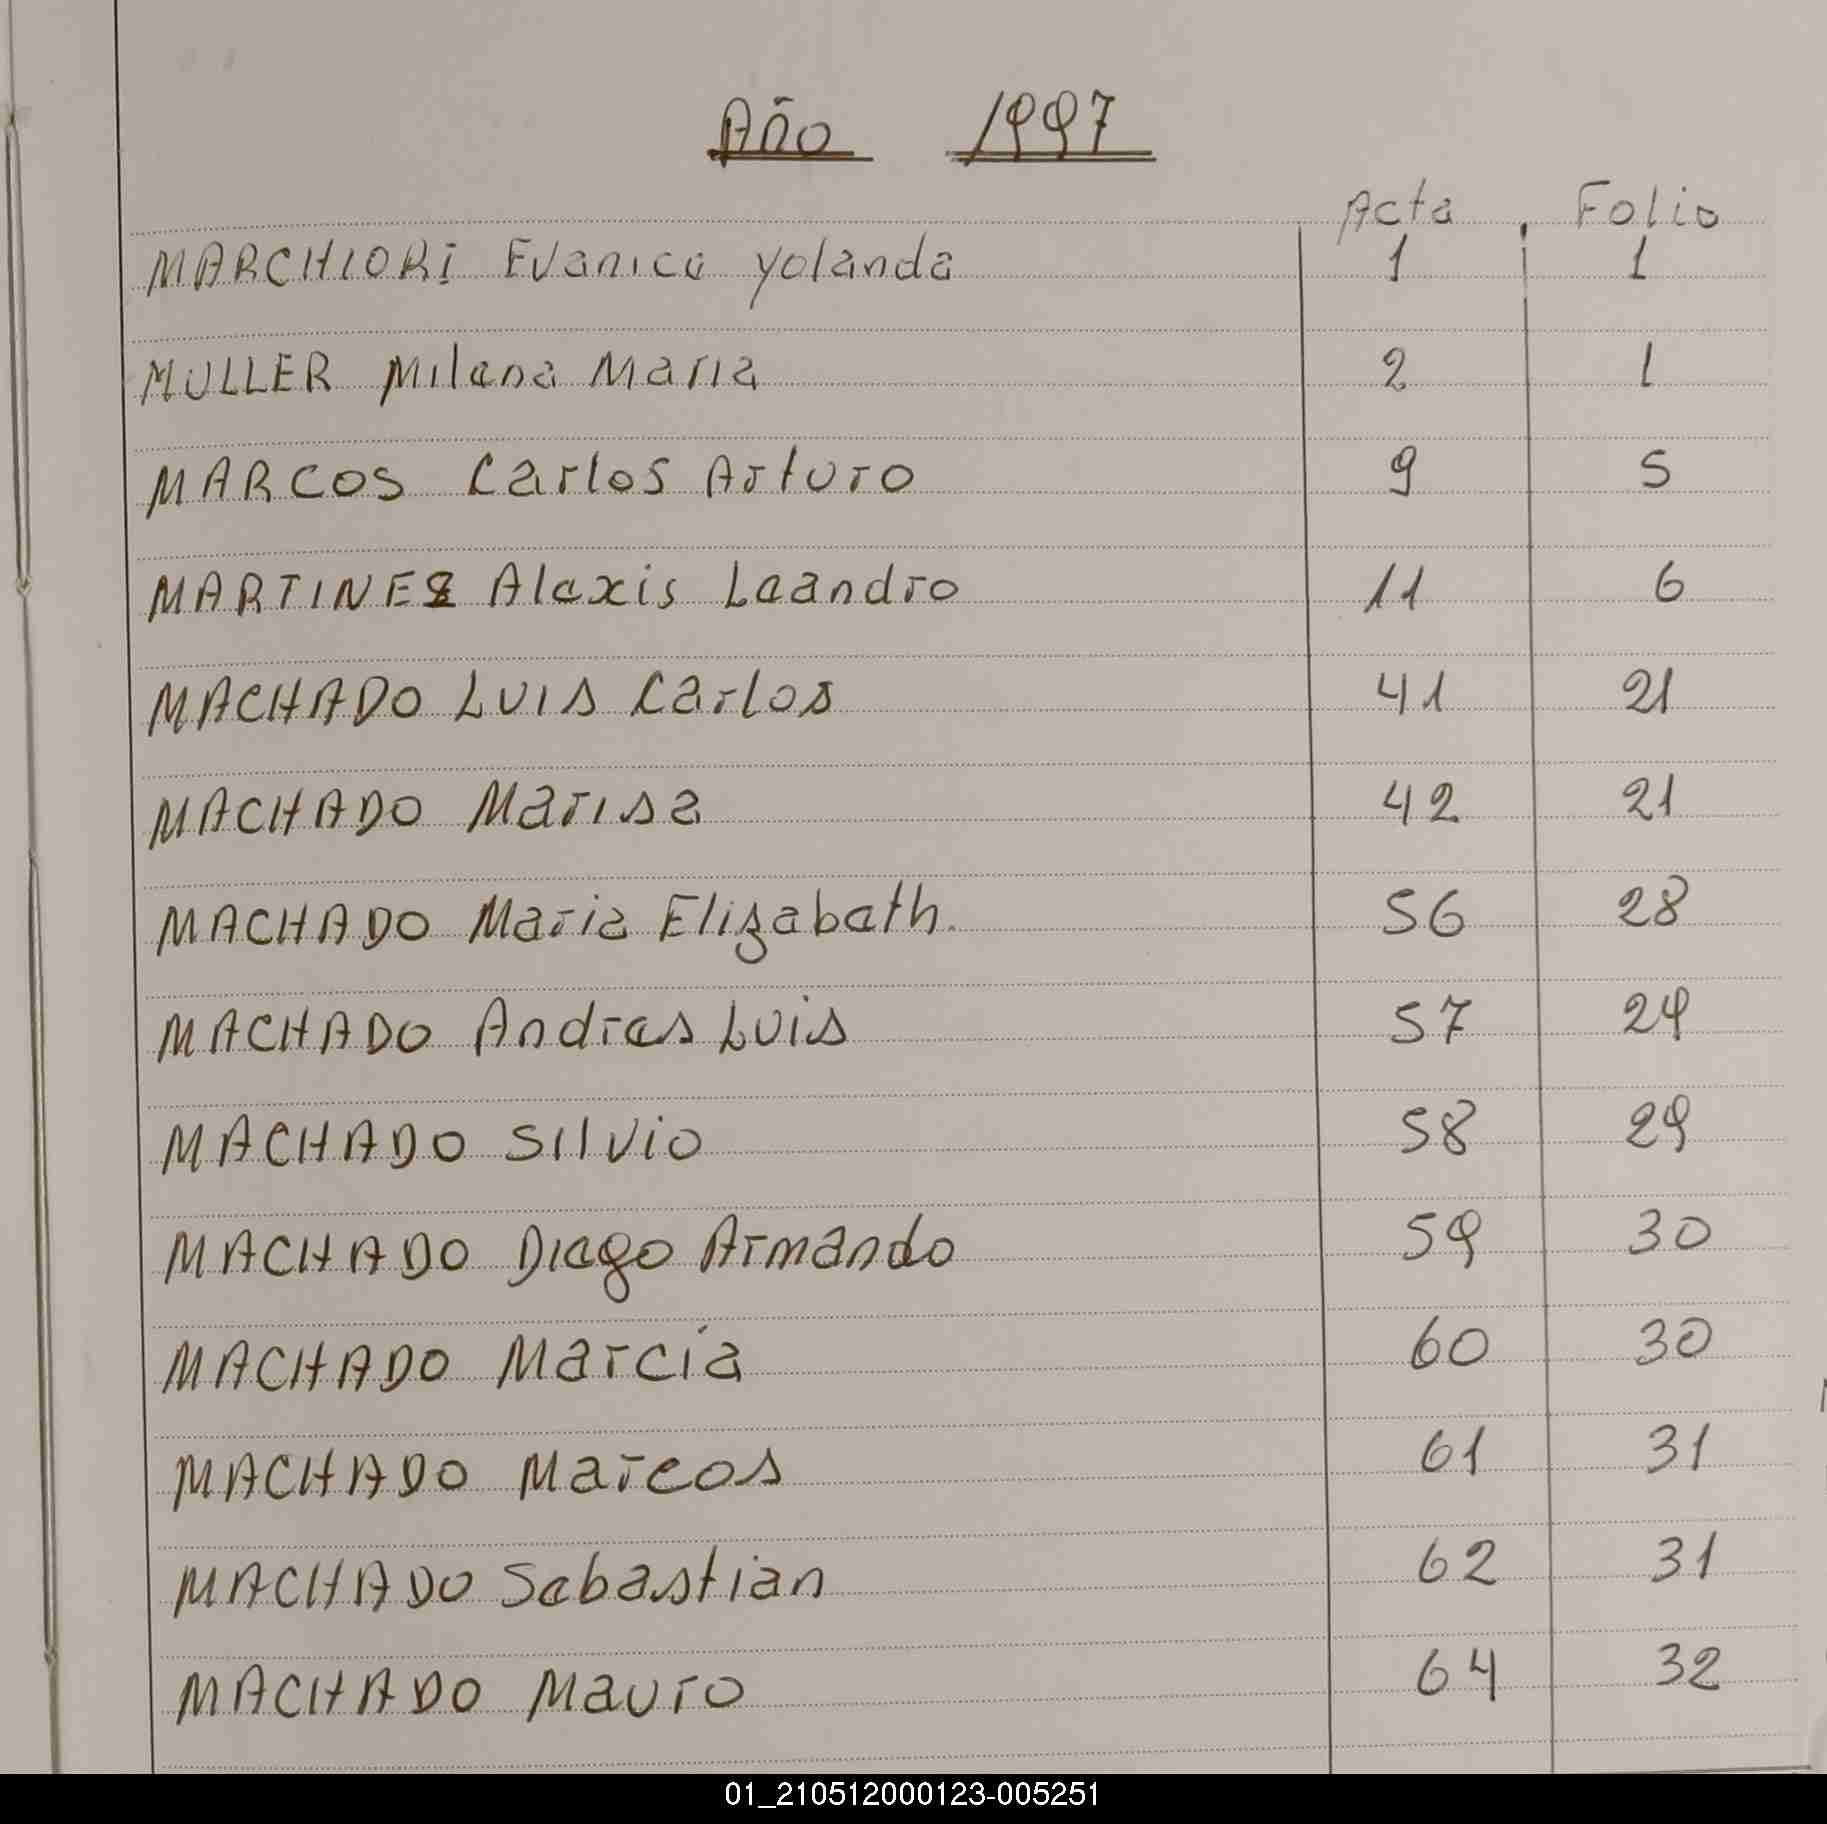 Año 1997
Acta Folio
MARCHIORI Evanice yolanda 1 1
MULLER Milena Maria 2 1
MARCOS Carlos Arturo 9 5
MARTINEZ Alexis Leandro 11 6
MACHADO LUIS Carlos 41 21
MACHADO Marisa 42 21
MACHADO Maria Elizabeth. 56 28
MACHADO Andres Luis 57 29
MACHADO Silvio 58 29
MACHADO Diego Armando 59 30
MACHADO Marcia 60 30
MACHADO Marcos 61 31
MACHADO Sebastian 62 31
MACHADO Mauro 64 32
01_210512000123-005251